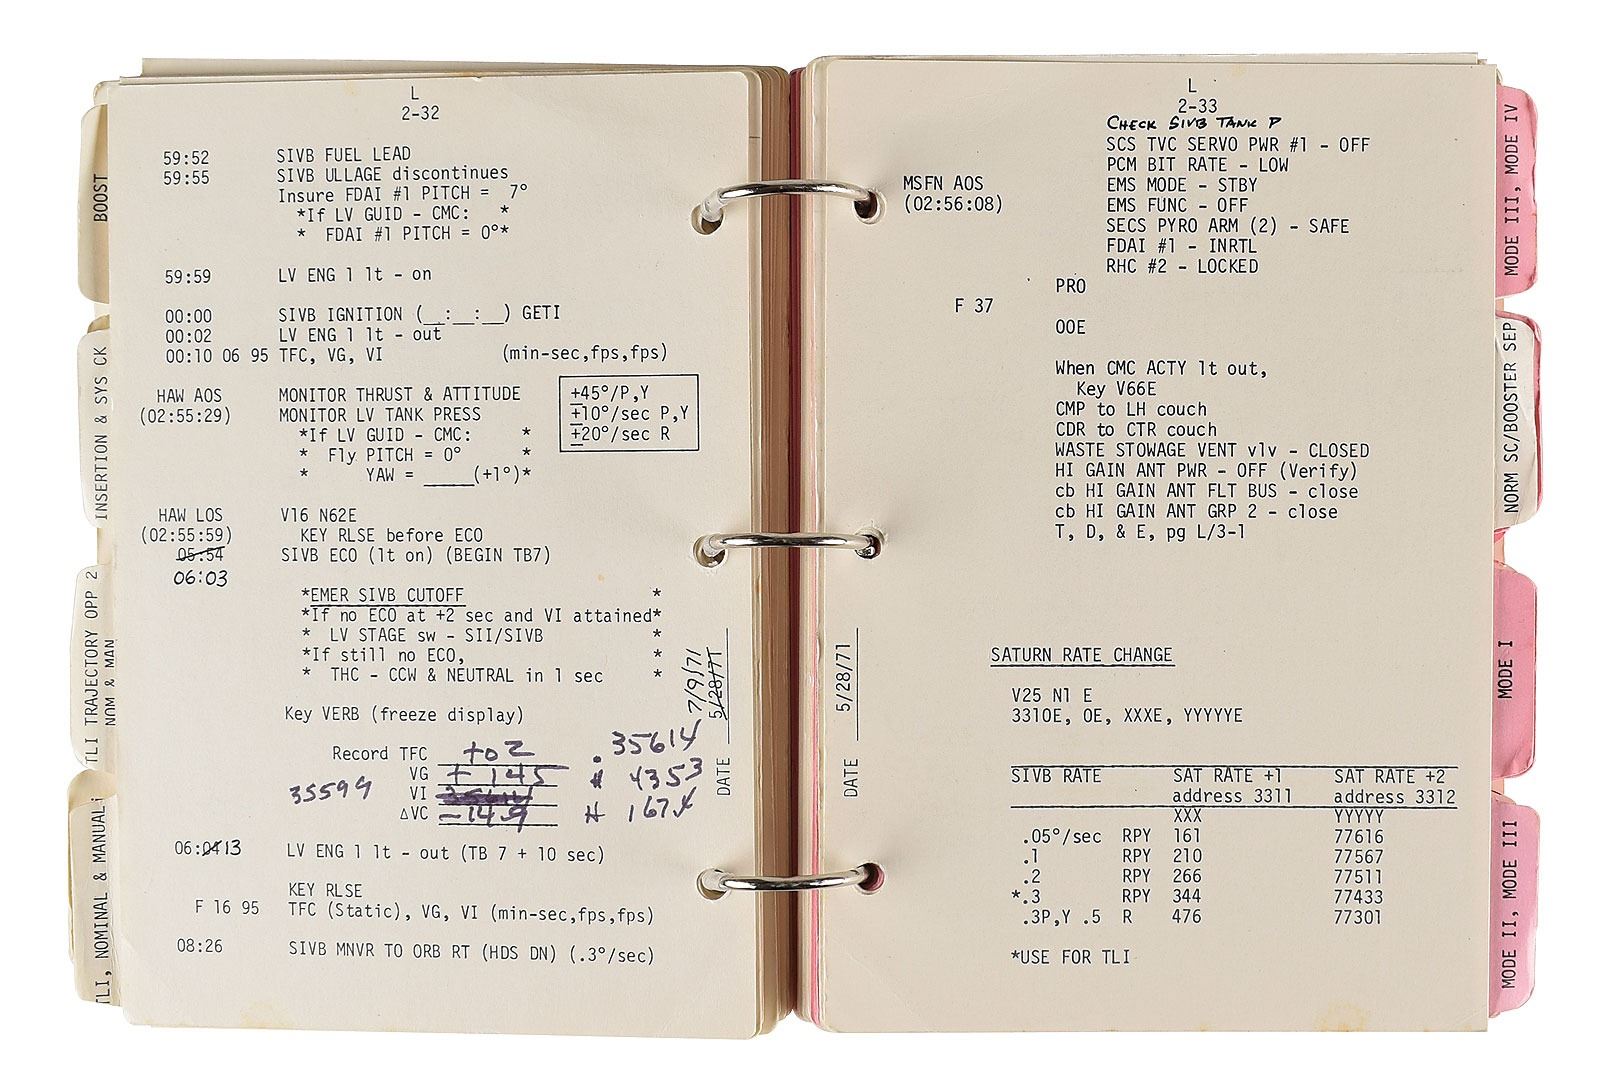 L
2-32
59:52 SIVB FUEL LEAD
59:55 SIVB ULLAGE discontinues
Insure FDAI #1 PITCH = 7°
*If LV GUID - CMC: *
* FDAI #1 PITCH = 0°*
59:59 LV ENG 1 lt - on
00:00 SIVB IGNITION (__:__:__) GETI
00:02 LV ENG 1 lt - out
00:10 06 95 TFC, VG, VI (min-sec,fps,fps)
HAW AOS MONITOR THRUST & ATTITUDE
(02:55:29) MONITOR LV TANK PRESS
±45°/P,Y
±10°/sec P,Y
±20°/sec R
*If LV GUID - CMC: *
* Fly PITCH = 0° *
* YAW = _____(+1°)*
HAW LOS V16 N62E
(02:55:59) KEY RLSE before ECO
05:54 SIVB ECO (lt on) (BEGIN TB7)
06:03
*EMER SIVB CUTOFF *
*If no ECO at +2 sec and VI attained*
* LV STAGE sw - SII/SIVB *
*If still no ECO, *
* THC - CCW & NEUTRAL in 1 sec *
Key VERB (freeze display)
Record TFC +02 . 35614
VG + 145 4353
35599 VI
ΔVC -149 H 167
06:13 LV ENG 1 lt - out (TB 7 + 10 sec)
KEY RLSE
F 16 95 TFC (Static), VG, VI (min-sec,fps,fps)
08:26 SIVB MNVR TO ORB RT (HDS DN) (.3°/sec)
DATE 5/28/71
7/9/71
BOOST
INSERTION & SYS CK
TLI TRAJECTORY OPP 2
NOM & MAN
TLI, NOMINAL & MANUAL
L
2-33
CHECK SIVB TANK P
SCS TVC SERVO PWR #1 - OFF
PCM BIT RATE - LOW
MSFN AOS EMS MODE - STBY
(02:56:08) EMS FUNC - OFF
SECS PYRO ARM (2) - SAFE
FDAI #1 - INRTL
RHC #2 - LOCKED
PRO
F 37
00E
When CMC ACTY lt out,
Key V66E
CMP to LH couch
CDR to CTR couch
WASTE STOWAGE VENT vlv - CLOSED
HI GAIN ANT PWR - OFF (Verify)
cb HI GAIN ANT FLT BUS - close
cb HI GAIN ANT GRP 2 - close
T, D, & E, pg L/3-1
SATURN RATE CHANGE
V25 N1 E
3310E, 0E, XXXE, YYYYYE
SIVB RATE SAT RATE +1 SAT RATE +2
address 3311 address 3312
XXX YYYYY
.05°/sec RPY 161 77616
.1 RPY 210 77567
.2 RPY 266 77511
*.3 RPY 344 77433
.3P,Y .5 R 476 77301
*USE FOR TLI
DATE 5/28/71
MODE III, MODE IV
NORM SC/BOOSTER SEP
MODE I
MODE II, MODE III